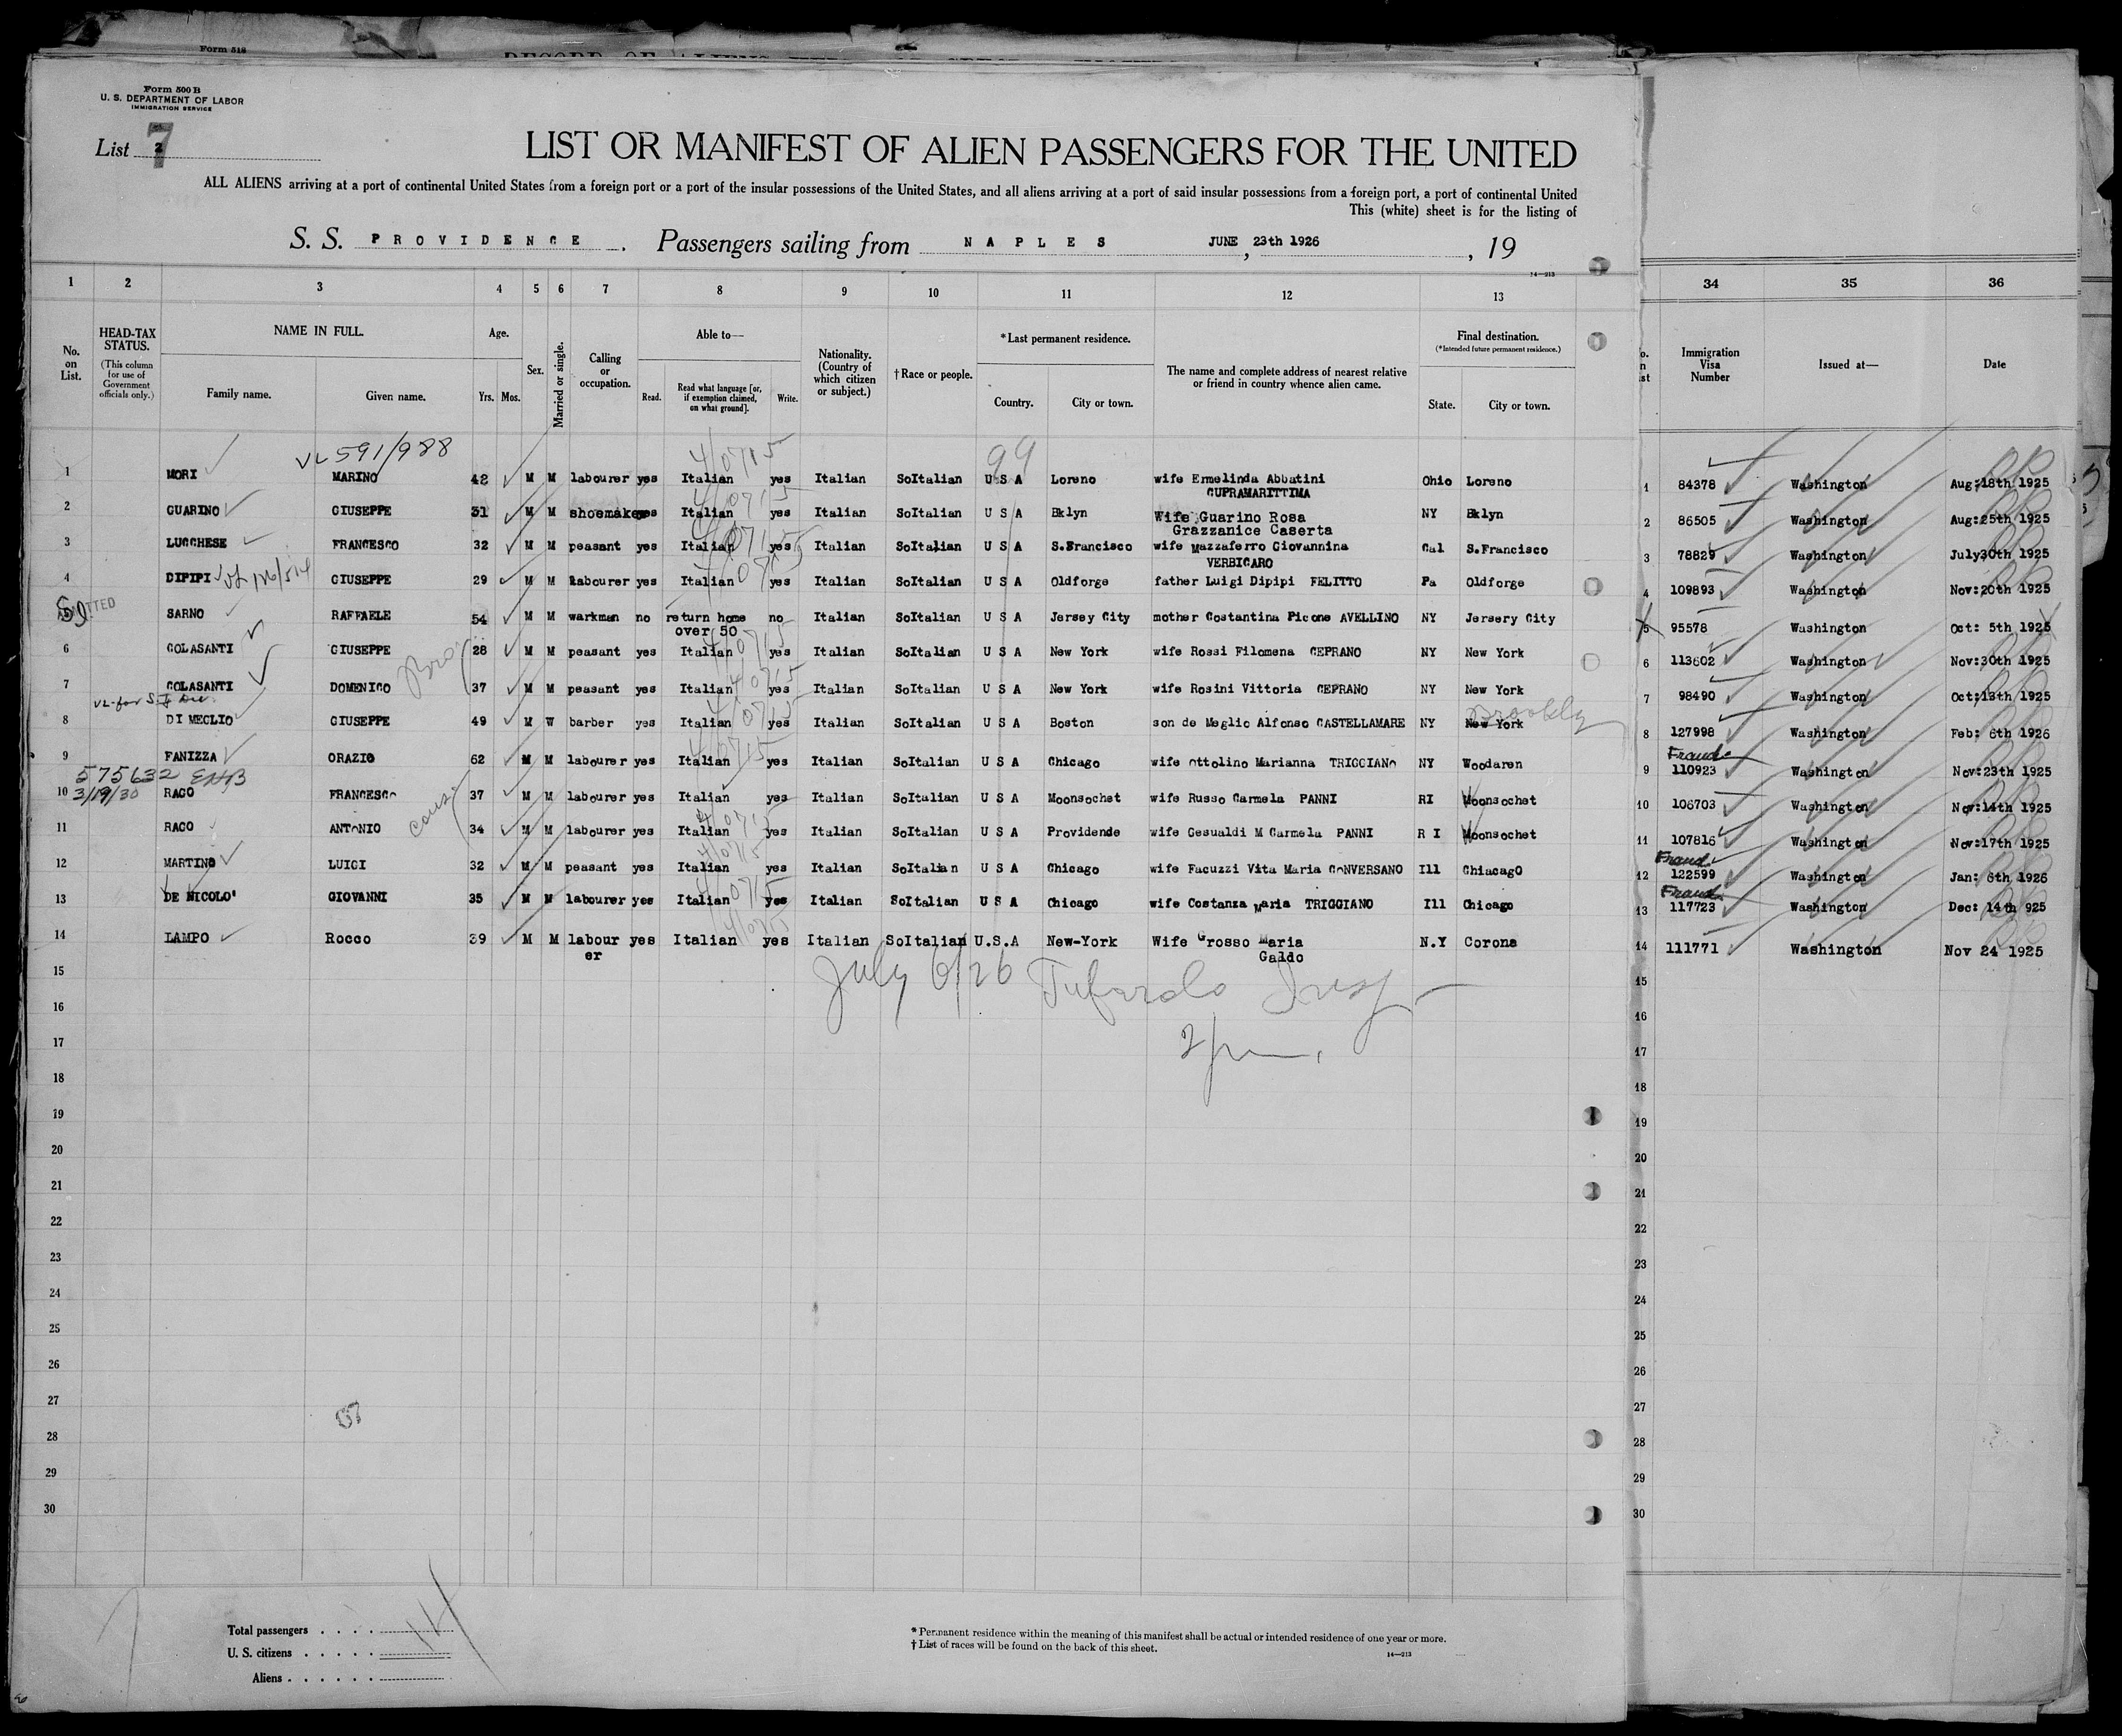 Form 518
Form 500 B
U. S. DEPARTMENT OF LABOR
IMMIGRATION SERVICE
List 7
LIST OR MANIFEST OF ALIEN PASSENGERS FOR THE UNITED
ALL ALIENS arriving at a port of continental United States from a foreign port or a port of the insular possessions of the United States, and all aliens arriving at a port of said insular possessions from a foreign port, a port of continental United
This (white) sheet is for the listing of
S. S. PROVIDENCE. Passengers sailing from NAPLES, JUNE 23th 1926, 19
14—213
1 2 3 4 5 6 7 8 9 10 11 12 13 34 35 36
No. on List. HEAD-TAX STATUS. (This column for use of Government officials only.) NAME IN FULL. Family name. Given name. Age. Yrs. Mos. Sex. Married or single. Calling or occupation. Able to— Read. Read what language [or, if exemption claimed, on what ground]. Write. Nationality. (Country of which citizen or subject.) †Race or people. *Last permanent residence. Country. City or town. The name and complete address of nearest relative or friend in country whence alien came. Final destination. (*Intended future permanent residence.) State. City or town. Immigration Visa Number Issued at— Date
VL 591/988 99
1 MORI MARINO 42 M M labourer yes Italian yes Italian SoItalian U S A Loreno wife Ermelinda Abbatini Ohio Loreno 1 84378 Washington Aug:18th 1925
CUPRAMARITTIMA
2 GUARINO GIUSEPPE 31 M M shoemaker yes Italian yes Italian SoItalian U S A Bklyn Wife Guarino Rosa NY Bklyn 2 86505 Washington Aug:25th 1925
Grazzanice Caserta
3 LUCCHESE FRANCESCO 32 M M peasant yes Italian yes Italian SoItalian U S A S.Francisco wife Mazzaferro Giovannina Cal S.Francisco 3 78829 Washington July30th 1925
VERBICARO
4 DIPIPI GIUSEPPE 29 M M labourer yes Italian yes Italian SoItalian U S A Oldforge father Luigi Dipipi FELITTO Pa Oldforge 4 109893 Washington Nov:20th 1925
SI ADMITTED SARNO RAFFAELE 54 M M warkman no return home no Italian SoItalian U S A Jersey City mother Costantina Picone AVELLINO NY Jersery City 5 95578 Washington Oct: 5th 1925
over 50
6 COLASANTI GIUSEPPE 28 M M peasant yes Italian yes Italian SoItalian U S A New York wife Rossi Filomena CEPRANO NY New York 6 113602 Washington Nov:30th 1925
Bro
7 COLASANTI DOMENICO 37 M M peasant yes Italian yes Italian SoItalian U S A New York wife Rosini Vittoria CEPRANO NY New York 7 98490 Washington Oct;13th 1925
Brookly
8 DI MEGLIO GIUSEPPE 49 M W barber yes Italian yes Italian SoItalian U S A Boston son de Meglio Alfonso CASTELLAMARE NY New York 8 127998 Washington Feb: 6th 1926
Fraud
9 FANIZZA ORAZIO 62 M M labourer yes Italian yes Italian SoItalian U S A Chicago wife Ottolino Marianna TRIGGIANO NY Woodaren 9 110923 Washington Nov:23th 1925
575632
10 3/19/30 RAGO FRANCESCO 37 M M labourer yes Italian yes Italian SoItalian U S A Moonsochet wife Russo Carmela PANNI RI Woonsochet 10 106703 Washington Nov:14th 1925
cous
11 RAGO ANTONIO 34 M M labourer yes Italian yes Italian SoItalian U S A Providende wife Gesualdi M Carmela PANNI R I Woonsochet 11 107816 Washington Nov:17th 1925
Fraud
12 MARTINO LUIGI 32 M M peasant yes Italian yes Italian SoItalian U S A Chicago wife Facuzzi Vita Maria CONVERSANO Ill ChiacagO 12 122599 Washington Jan: 6th 1926
Fraud
13 DE NICOLO' GIOVANNI 35 M M labourer yes Italian yes Italian SoItalian U S A Chicago wife Costanza Maria TRIGGIANO Ill Chicago 13 117723 Washington Dec: 14th 925
14 LAMPO Rocco 39 M M labour yes Italian yes Italian SoItalian U.S.A New-York Wife Grosso Maria N.Y Corona 14 111771 Washington Nov 24 1925
er Galdo
15 July 6/26 15
16 16
17 2 pm. 17
18 18
19 19
20 20
21 21
22 22
23 23
24 24
25 25
26 26
27 27
28 28
29 29
30 30
Total passengers 14
U. S. citizens
Aliens
* Permanent residence within the meaning of this manifest shall be actual or intended residence of one year or more.
† List of races will be found on the back of this sheet.
14—213